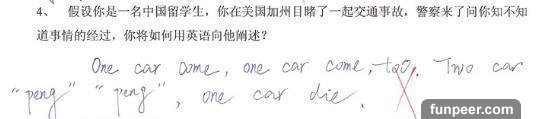 4、 假设你是一名中国留学生，你在美国加州目睹了一起交通事故，警察来了问你知不知
道事情的经过，你将如何用英语向他阐述？
One car come, one car come, too. Two car
"peng" "peng", one car die.
funpeer.com